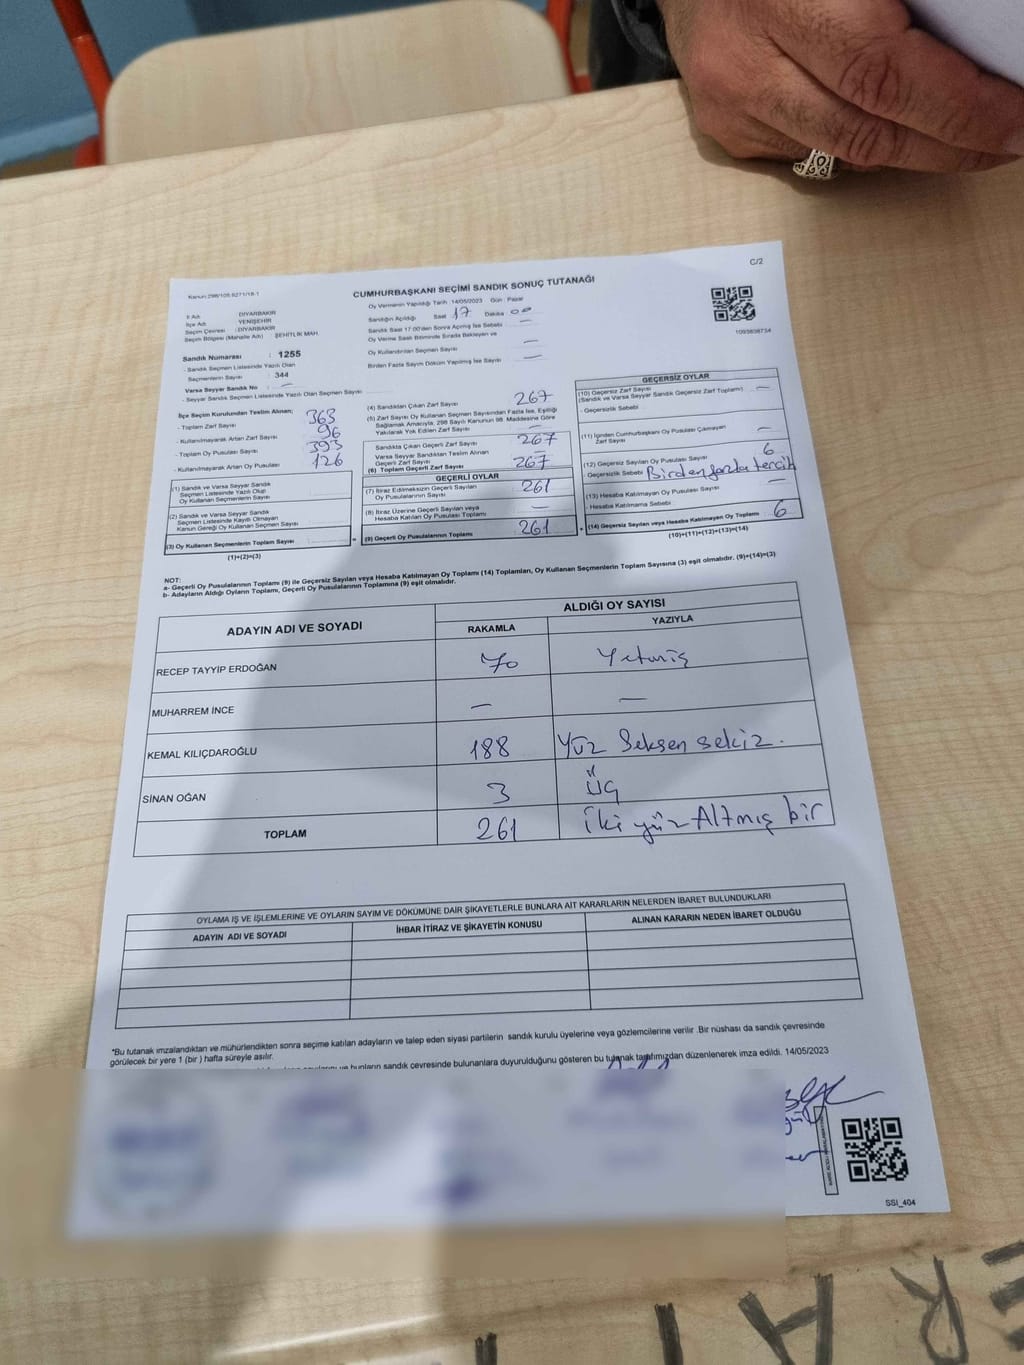 C/2
Kanun:298/105.6271/18-1
CUMHURBAŞKANI SEÇİMİ SANDIK SONUÇ TUTANAĞI
İl Adı : DİYARBAKIR
İlçe Adı : YENİŞEHİR
Seçim Çevresi : DİYARBAKIR
Seçim Bölgesi (Mahalle Adı) : ŞEHİTLİK MAH.
Sandık Numarası : 1255
- Sandık Seçmen Listesinde Yazılı Olan
Seçmenlerin Sayısı : 344
Varsa Seyyar Sandık No : —
- Seyyar Sandık Seçmen Listesinde Yazılı Olan Seçmen Sayısı
Oy Vermenin Yapıldığı Tarih 14/05/2023 Gün : Pazar
Sandığın Açıldığı Saat 17 Dakika 00
Sandık Saat 17:00'den Sonra Açılmış İse Sebebi —
Oy Verme Saati Bitiminde Sırada Bekleyen ve
Oy Kullandırılan Seçmen Sayısı —
Birden Fazla Sayım Döküm Yapılmış İse Sayısı —
1093838734
İlçe Seçim Kurulundan Teslim Alınan;
- Toplam Zarf Sayısı 363
- Kullanılmayarak Artan Zarf Sayısı 96
- Toplam Oy Pusulası Sayısı 393
- Kullanılmayarak Artan Oy Pusulası 126
(1) Sandık ve Varsa Seyyar Sandık
Seçmen Listesinde Yazılı Olup
Oy Kullanan Seçmenlerin Sayısı
(2) Sandık ve Varsa Seyyar Sandık
Seçmen Listesinde Kayıtlı Olmayan
Kanun Gereği Oy Kullanan Seçmen Sayısı
(3) Oy Kullanan Seçmenlerin Toplam Sayısı
(1)+(2)=(3)
(4) Sandıktan Çıkan Zarf Sayısı 267
(5) Zarf Sayısı Oy Kullanan Seçmen Sayısından Fazla İse, Eşitliği
Sağlamak Amacıyla, 298 Sayılı Kanunun 98. Maddesine Göre
Yakılarak Yok Edilen Zarf Sayısı —
Sandıkta Çıkan Geçerli Zarf Sayısı 267
Varsa Seyyar Sandıktan Teslim Alınan
Geçerli Zarf Sayısı —
(6) Toplam Geçerli Zarf Sayısı 267
GEÇERLİ OYLAR
(7) İtiraz Edilmeksizin Geçerli Sayılan
Oy Pusulalarının Sayısı 261
(8) İtiraz Üzerine Geçerli Sayılan veya
Hesaba Katılan Oy Pusulası Toplamı —
(9) Geçerli Oy Pusulalarının Toplamı 261
GEÇERSİZ OYLAR
(10) Geçersiz Zarf Sayısı
(Sandık ve Varsa Seyyar Sandık Geçersiz Zarf Toplamı) —
- Geçersizlik Sebebi
(11) İçinden Cumhurbaşkanı Oy Pusulası Çıkmayan
Zarf Sayısı —
(12) Geçersiz Sayılan Oy Pusulası Sayısı 6
Geçersizlik Sebebi Birden fazla tercih
(13) Hesaba Katılmayan Oy Pusulası Sayısı —
- Hesaba Katılmama Sebebi
(14) Geçersiz Sayılan veya Hesaba Katılmayan Oy Toplamı 6
(10)+(11)+(12)+(13)=(14)
NOT:
a- Geçerli Oy Pusulalarının Toplamı (9) ile Geçersiz Sayılan veya Hesaba Katılmayan Oy Toplamı (14) Toplamları, Oy Kullanan Seçmenlerin Toplam Sayısına (3) eşit olmalıdır. (9)+(14)=(3)
b- Adayların Aldığı Oyların Toplamı, Geçerli Oy Pusulalarının Toplamına (9) eşit olmalıdır.
ADAYIN ADI VE SOYADI
ALDIĞI OY SAYISI
RAKAMLA YAZIYLA
RECEP TAYYİP ERDOĞAN 70 Yetmiş
MUHARREM İNCE — —
KEMAL KILIÇDAROĞLU 188 Yüz Seksen sekiz.
SİNAN OĞAN 3 Üç
TOPLAM 261 İki yüz Altmış bir
OYLAMA İŞ VE İŞLEMLERİNE VE OYLARIN SAYIM VE DÖKÜMÜNE DAİR ŞİKAYETLERLE BUNLARA AİT KARARLARIN NELERDEN İBARET BULUNDUKLARI
ADAYIN ADI VE SOYADI İHBAR İTİRAZ VE ŞİKAYETİN KONUSU ALINAN KARARIN NEDEN İBARET OLDUĞU
*Bu tutanak imzalandıktan ve mühürlendikten sonra seçime katılan adayların ve talep eden siyasi partilerin sandık kurulu üyelerine veya gözlemcilerine verilir .Bir nüshası da sandık çevresinde
görülecek bir yere 1 (bir ) hafta süreyle asılır.
ve bunların sandık çevresinde bulunanlara duyurulduğunu gösteren bu tutanak tarafımızdan düzenlenerek imza edildi. 14/05/2023
SSI_404